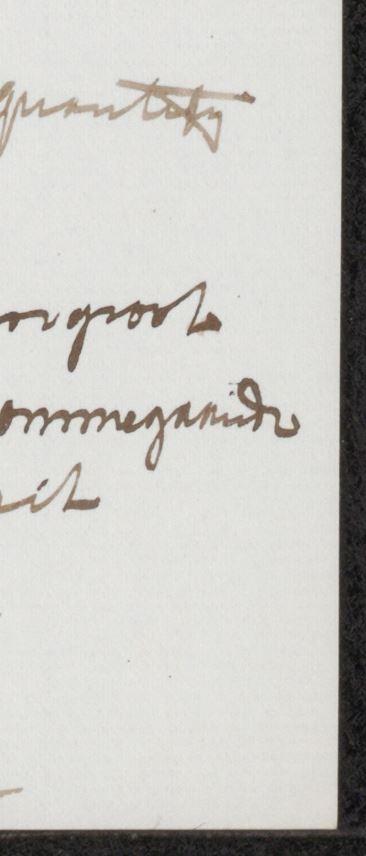 quantity
orgroot
ommegaande
uit